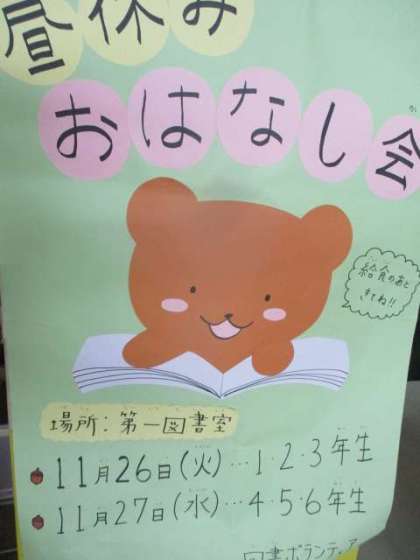 昼休み
おはなし会
給食のあと
きてね!!
場所:第一図書室
11月26日(火)…1・2・3年生
11月27日(水)…4・5・6年生
図書ボランティア